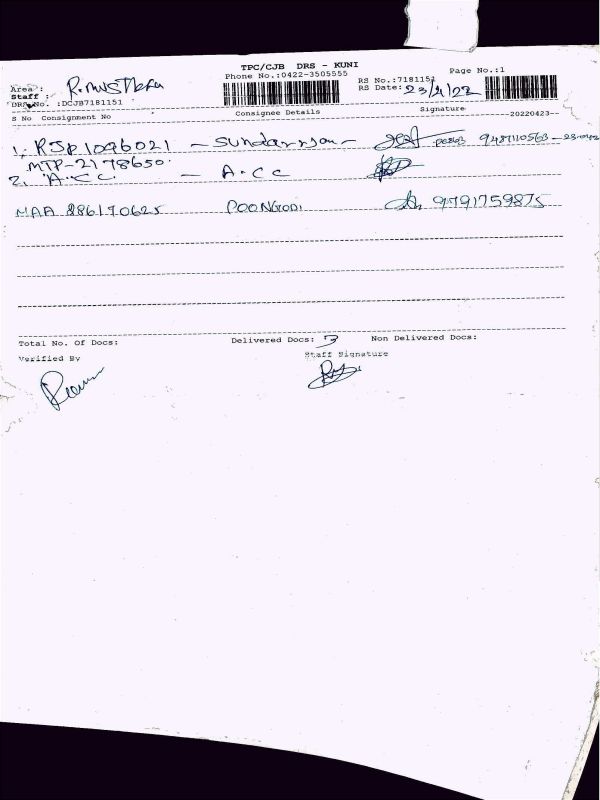 TPC/CJB DRS - KUNI
Phone No.:0422-3505555
Page No.:1
Area :
Staff :
DRS No. :DCJB7181151
RS No.:7181151
RS Date: 23/4/22
S No Consignment No Consignee Details Signature --20220423--
1. RJP1096021 - Sundarrjan -
MTP-2178650
2. A.CC. - A.CC
MAA 886170625 POONGODI 9791759875
Total No. Of Docs: Delivered Docs: 3 Non Delivered Docs:
Verified By Staff Signature